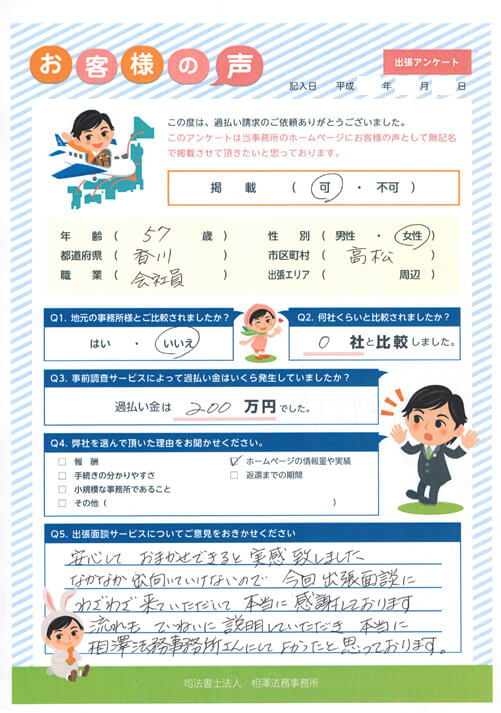 お客様の声
出張アンケート
記入日 平成 年 月 日
この度は、過払い請求のご依頼ありがとうございました。
このアンケートは当事務所のホームページにお客様の声として無記名
で掲載させて頂きたいと思っております。
掲 載 ( 可 ・ 不可 )
年 齢 ( 57 歳 ) 性 別 ( 男性 ・ 女性 )
都道府県 ( 香川 ) 市区町村 ( 高松 )
職 業 ( 会社員 ) 出張エリア ( 周辺 )
Q1. 地元の事務所様とご比較されましたか?
はい ・ いいえ
Q2. 何社くらいと比較されましたか?
0 社と比較しました。
Q3. 事前調査サービスによって過払い金はいくら発生していましたか?
過払い金は 200 万円でした。
Q4. 弊社を選んで頂いた理由をお聞かせください。
□ 報 酬
☑ ホームページの情報量や実績
□ 手続きの分かりやすさ
□ 返還までの期間
□ 小規模な事務所であること
□ その他 ( )
Q5. 出張面談サービスについてご意見をおきかせください
安心して おまかせできると 実感致しました
なかなか 出向いていけないので 今回 出張面談に
わざわざ 来ていただいて 本当に 感謝しております
流れも ていねいに 説明していただき 本当に
相澤法務事務所さんにして よかったと 思っております。
司法書士法人 相澤法務事務所